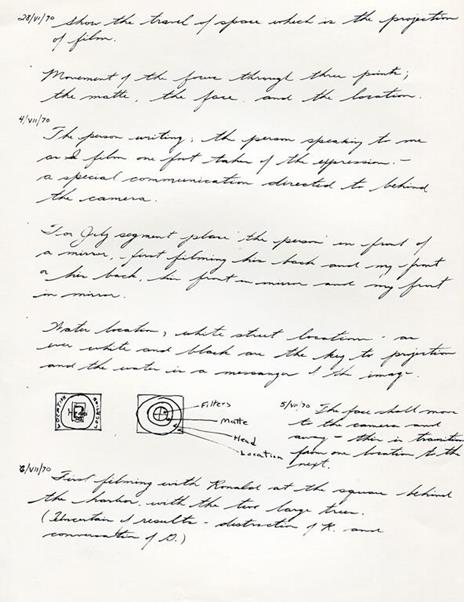 28/VI/70 Show the travel of space which is the projection
of film.
Movement of the focus through three points;
the matte, the face and the location.
4/VII/70
The person writing, the person speaking to me
as I film one foot takes of the expression. -
a special communication directed to behind
the camera.
For July segment place "the person" in front of
a mirror, first filming his back and my front
or his back, his front in mirror and my front
in mirror.
Water location, white street location - as
ever white and black are the key to projection
and the water is a messanger of the image.
Filters
Matte
Head
Location
5/VII/70 The face shall move
to the camera and
away - this is transition
from one location to the
next.
6/VII/70
First filming with Ronald at the square behind
the harbor with the two large trees.
(Uncertain of results - distraction of R. and
conversation of D.)